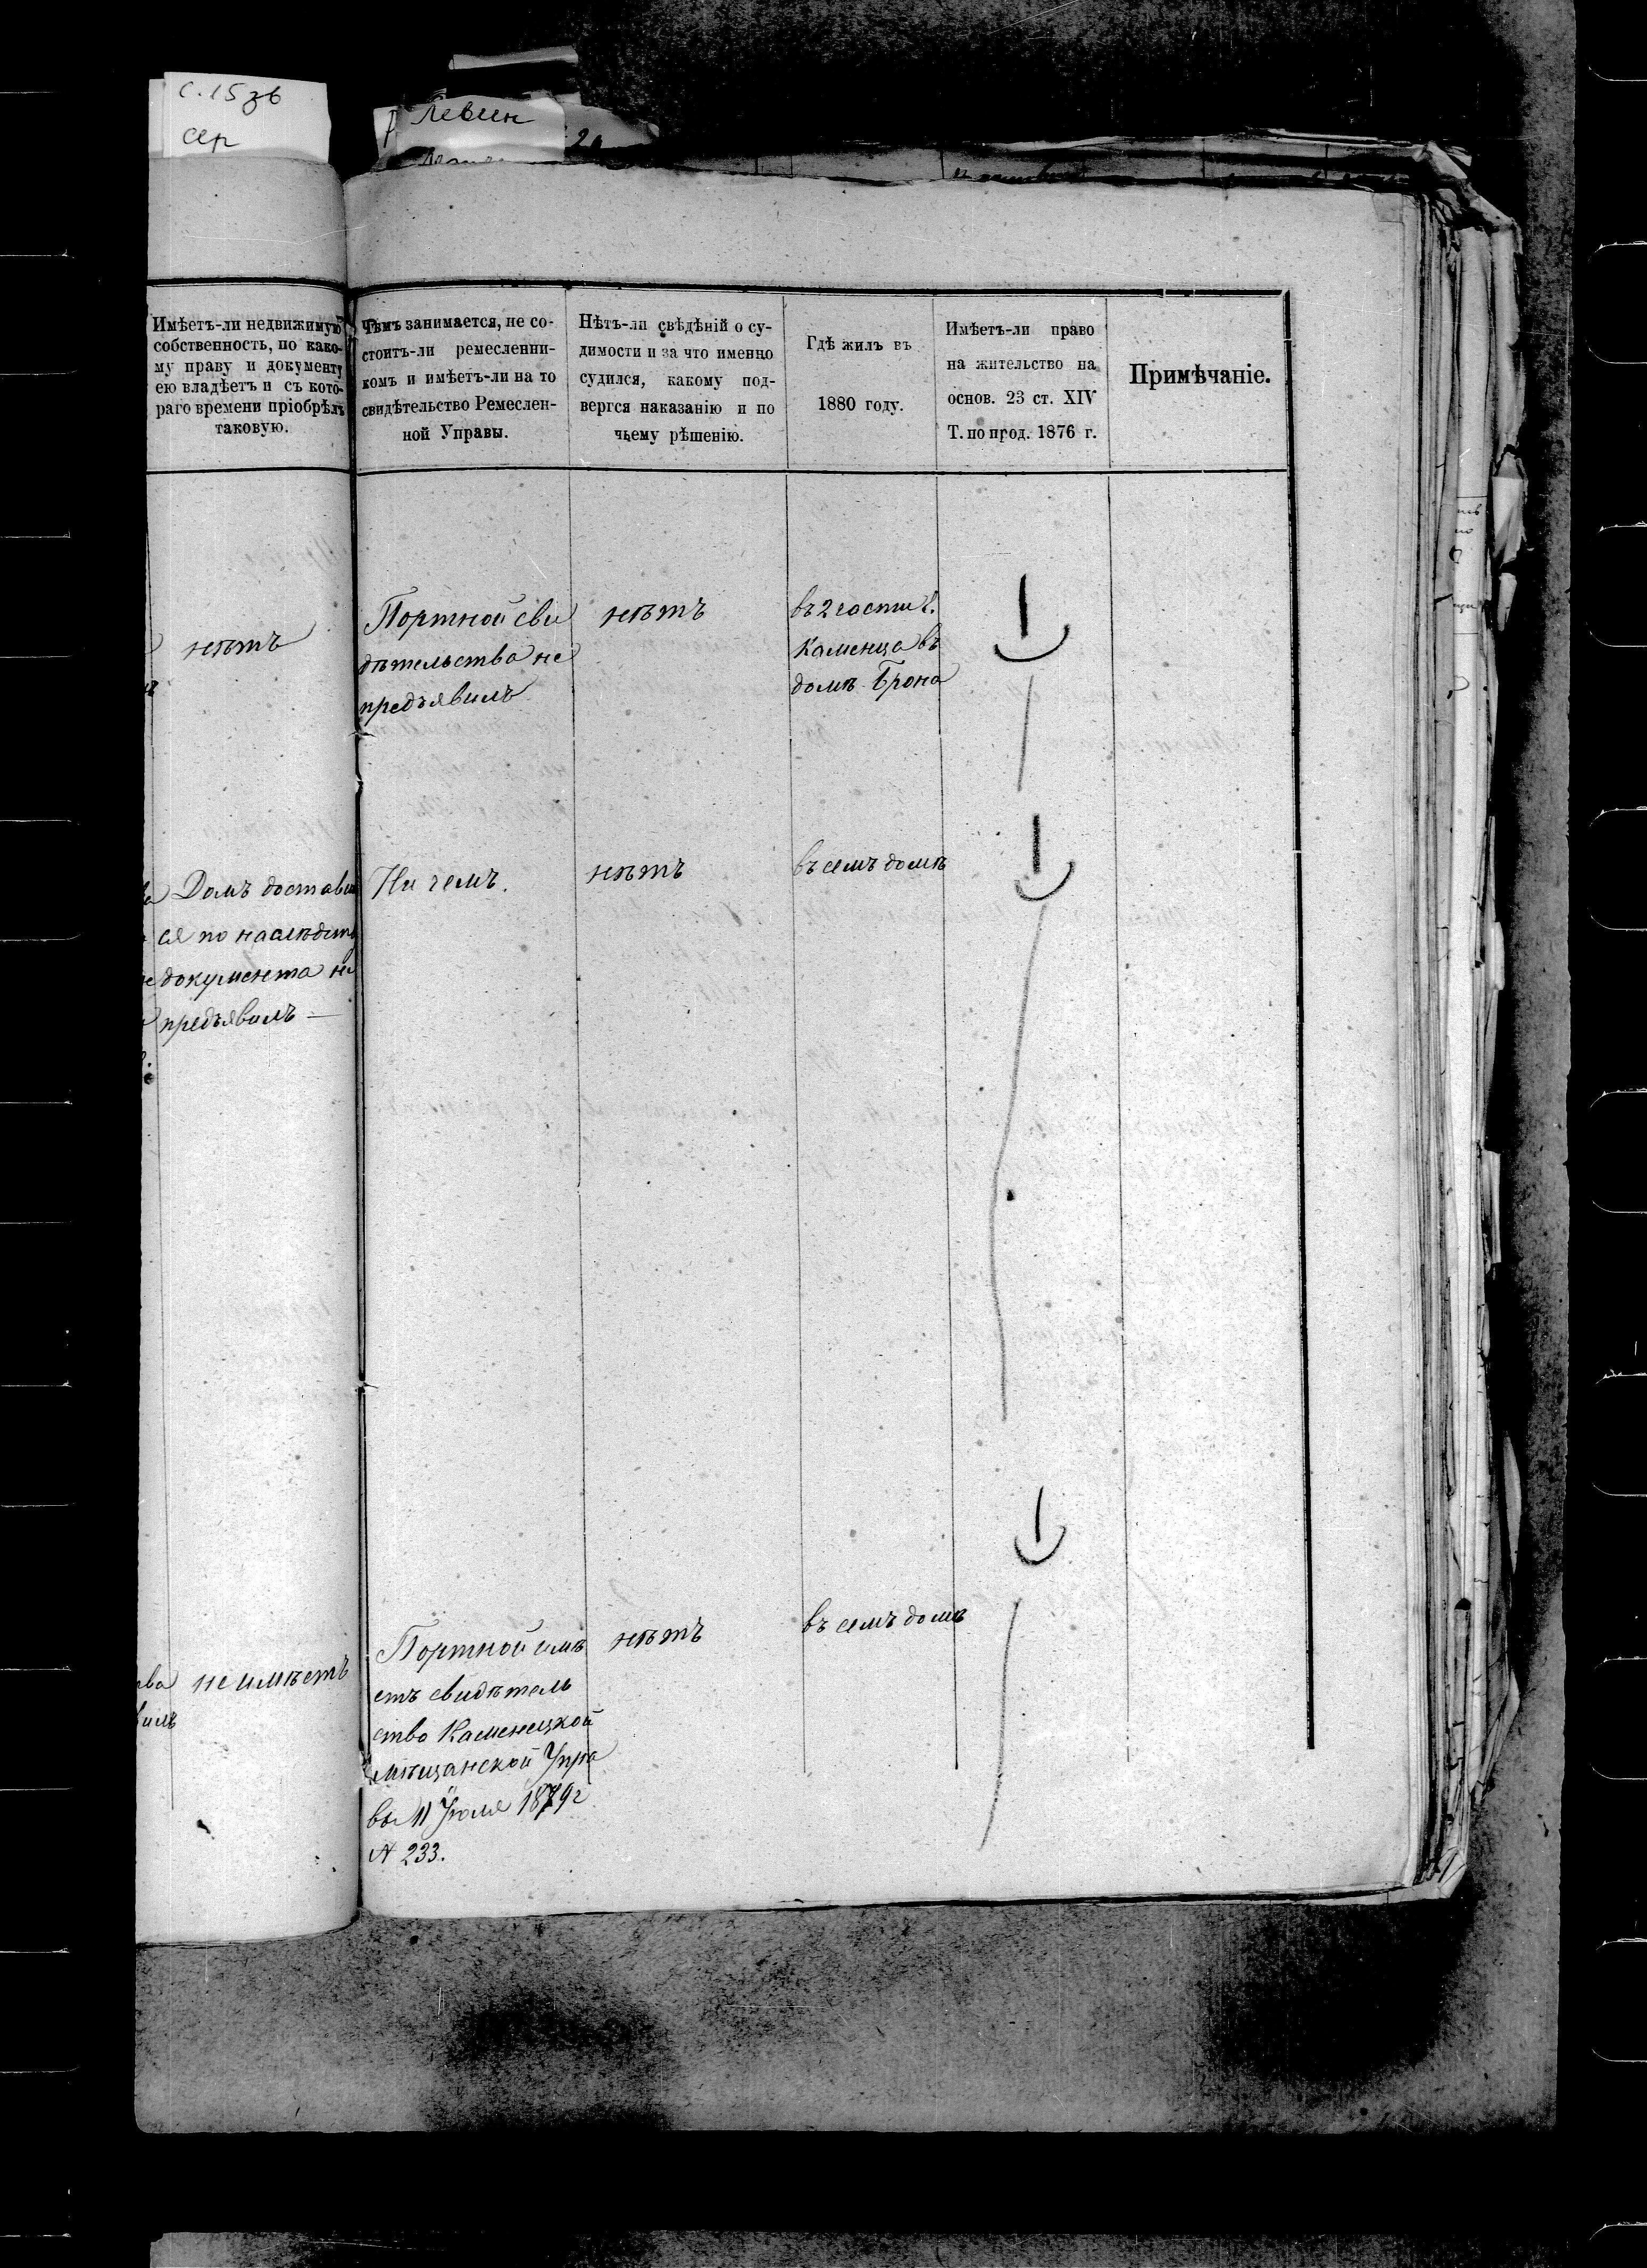 с. 15 зв
сер
Левин
Имѣетъ-ли недвижимую
собственность, по како-
му праву и документу
ею владѣетъ и съ кото-
раго времени пріобрѣлъ
таковую.
Чѣмъ занимается, не со-
стоитъ-ли ремесленни-
комъ и имѣетъ-ли на то
свидѣтельство Ремеслен-
ной Управы.
Нѣтъ-ли свѣдѣній о су-
димости и за что именно
судился, какому под-
вергся наказанію и по
чьему рѣшенію.
Гдѣ жилъ въ
1880 году.
Имѣетъ-ли право
на жительство на
основ. 23 ст. XIV
Т. по прод. 1876 г.
Примѣчаніе.
нѣтъ
Портной сви
дѣтельства не
предъявилъ
нѣтъ
въ 2 части г.
Каменца въ
домѣ Брона
Домъ достави
ся по наслѣдств
документа не
предъявилъ —
Ни чемъ.
нѣтъ
въ семъ домѣ
не имѣетъ
Портной имѣ
етъ свидѣтель
ство Каменецкой
мѣщанской Упра
вы 11 Іюля 1879 г
№ 233.
нѣтъ
въ семъ домѣ